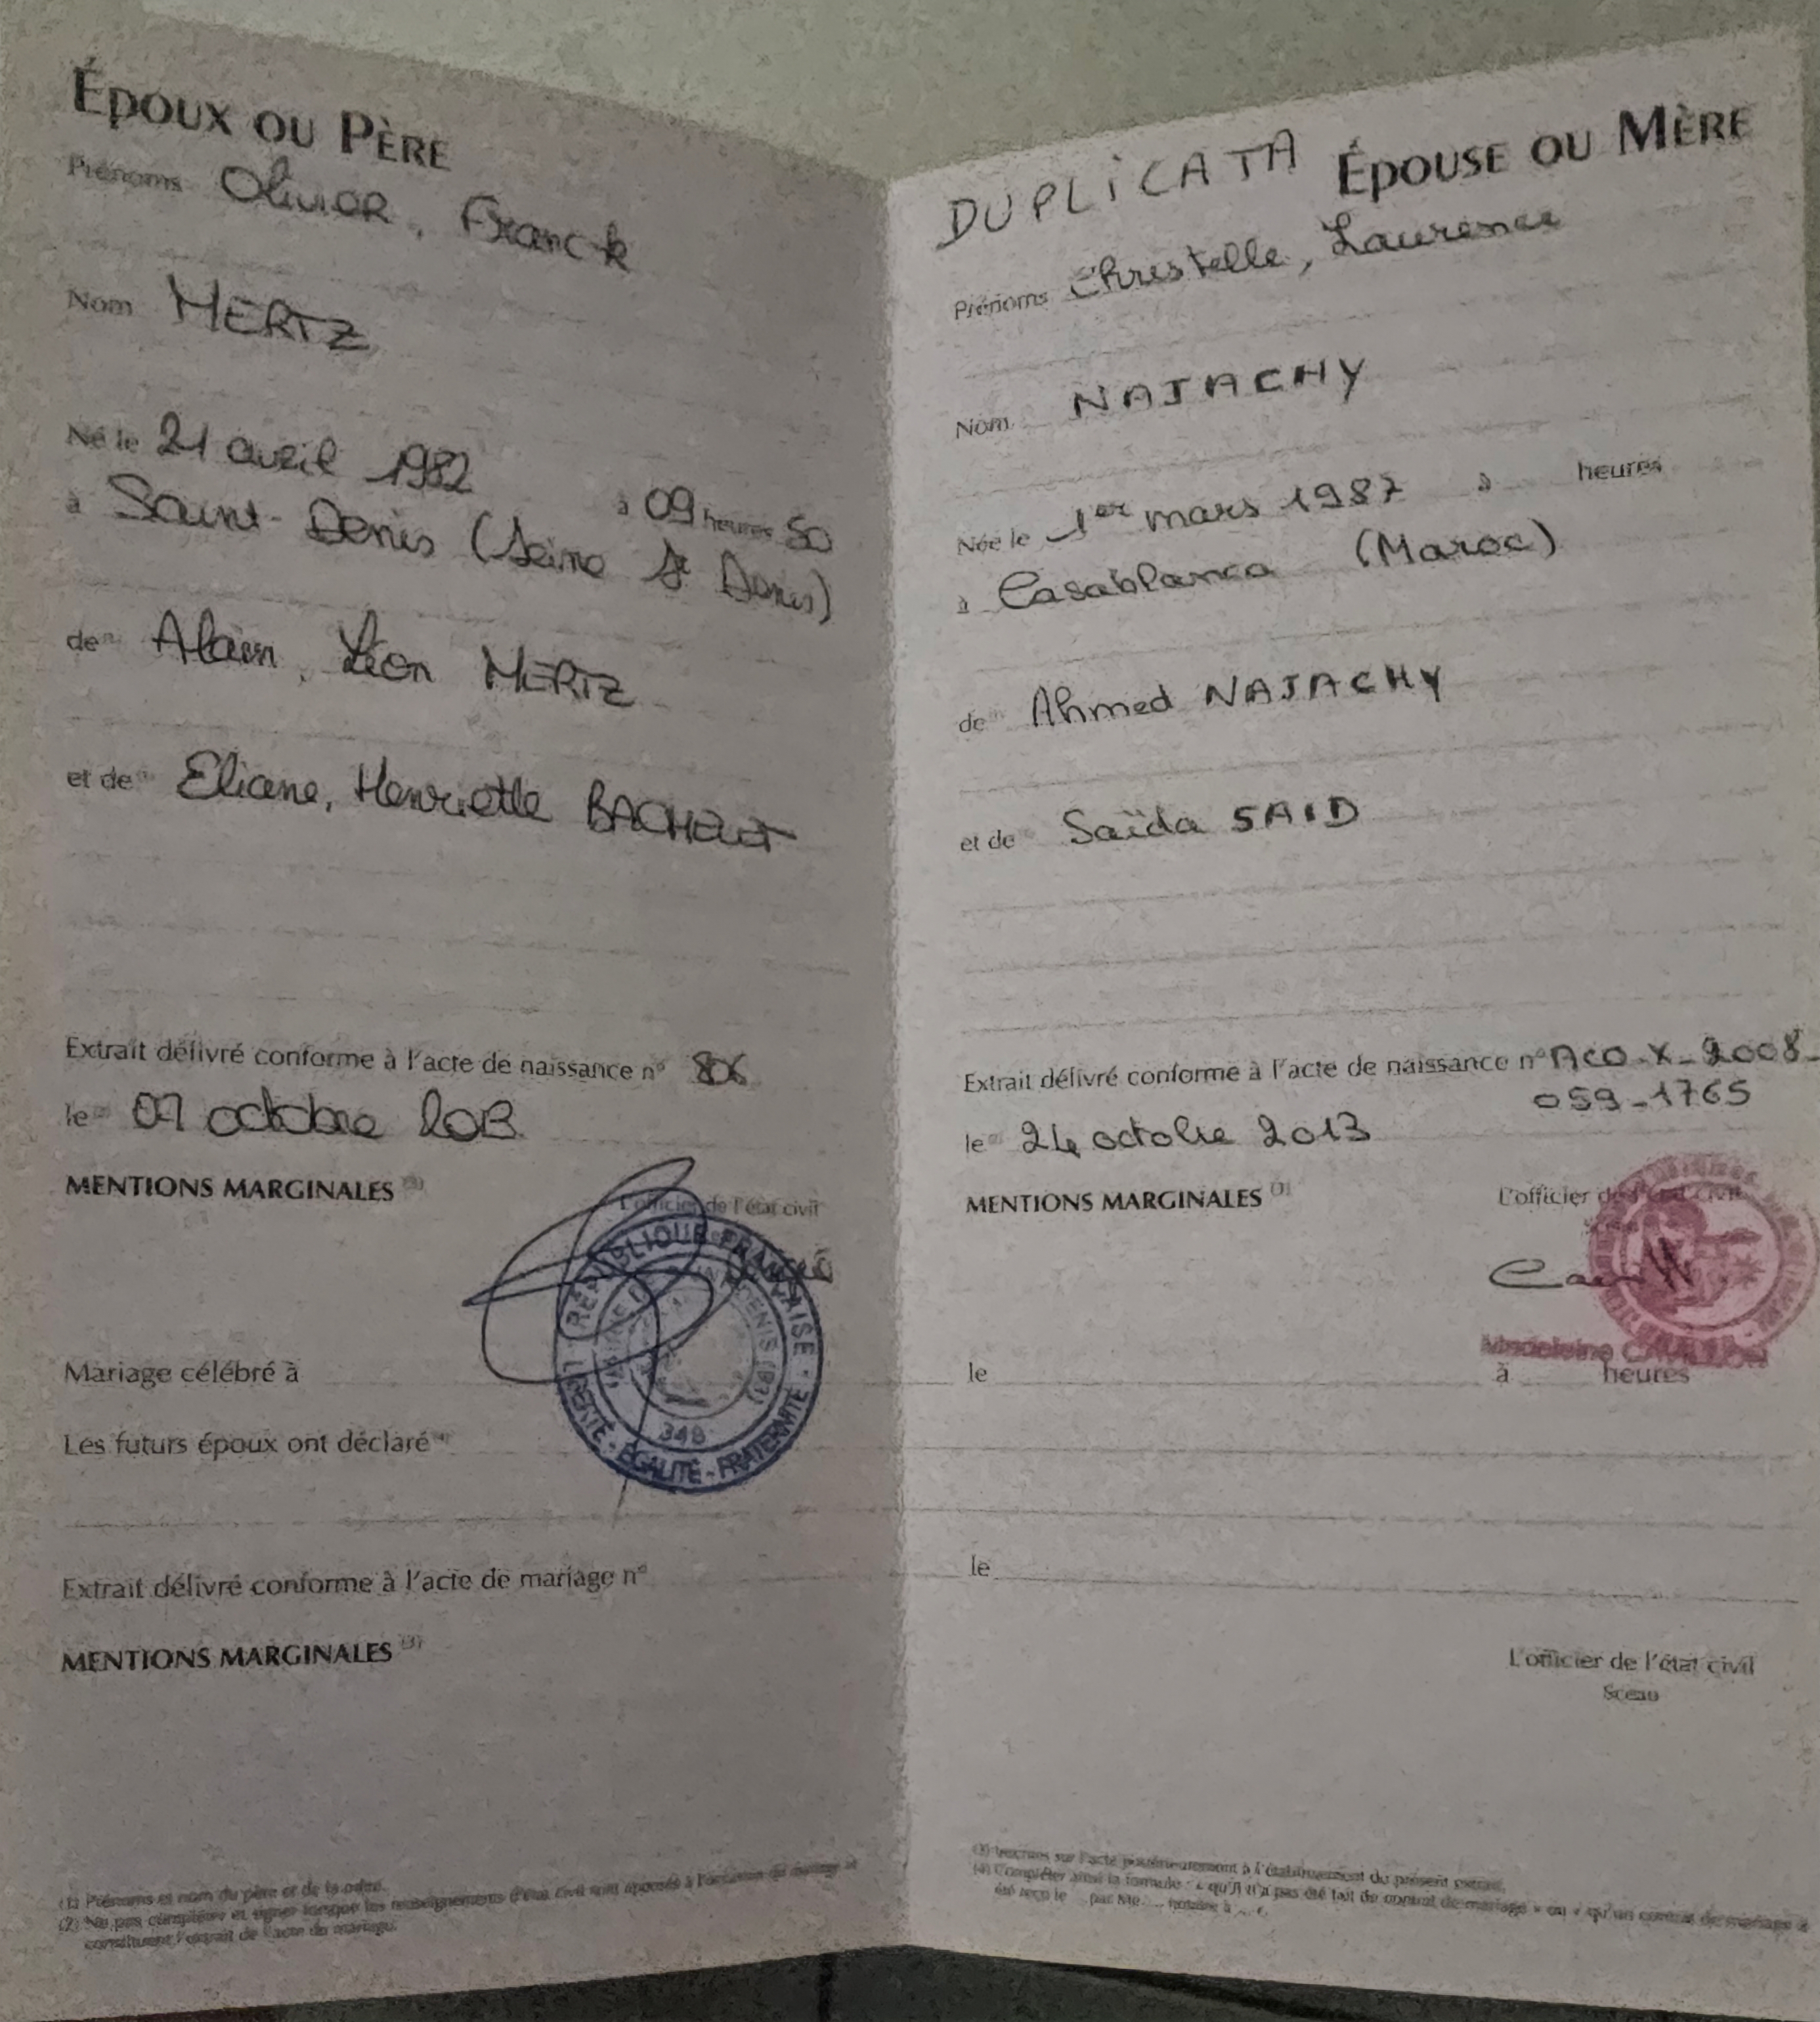 ÉPOUX OU PÈRE
Prénoms Olivier, Franck
Nom MERTZ
Né le 21 avril 1982 à 09 heures 50
à Saint-Denis (Seine St Denis)
de Alain, Léon MERTZ
et de Eliane, Henriette BACHELET
Extrait délivré conforme à l'acte de naissance n° 806
le 07 octobre 2013
MENTIONS MARGINALES (3)
L'officier de l'état civil
RÉPUBLIQUE FRANÇAISE
LIBERTÉ - ÉGALITÉ - FRATERNITÉ
348
Mariage célébré à
Les futurs époux ont déclaré
Extrait délivré conforme à l'acte de mariage n°
MENTIONS MARGINALES (3)
(1) Prénoms et nom du père et de la mère.
(2) Ne pas compléter et signer lorsque les renseignements d'état civil sont apposés à l'occasion du mariage et
constituent l'extrait de l'acte de mariage.
DUPLICATA ÉPOUSE OU MÈRE
Prénoms Christelle, Laurence
Nom NAJACHY
Née le 1er mars 1987 à heures
à Casablanca (Maroc)
de Ahmed NAJACHY
et de Saïda SAID
Extrait délivré conforme à l'acte de naissance n° ACO-X-2008-
059-1765
le 24 octobre 2013
MENTIONS MARGINALES (3)
L'officier de l'état civil
Madeleine
le à heures
le
L'officier de l'état civil
Sceau
(3) Inscrites sur l'acte postérieurement à l'établissement du présent extrait.
(4) Compléter ainsi la formule : « qu'il n'a pas été fait de contrat de mariage » ou « qu'un contrat de mariage a
été reçu le ... par Me ... notaire à ... ».